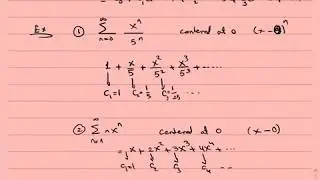 Ex ① ∞ Σ n=0 xⁿ/5ⁿ centered at 0 (x-0)ⁿ
1 + x/5 + x²/5² + x³/5³ + .....
C₀=1 C₁=1/5 C₂=1/25
② ∞ Σ n=1 nxⁿ centered at 0 (x-0)
= x + 2x² + 3x³ + 4x⁴ + ...
C₁=1 C₂ C₃ C₄ ...